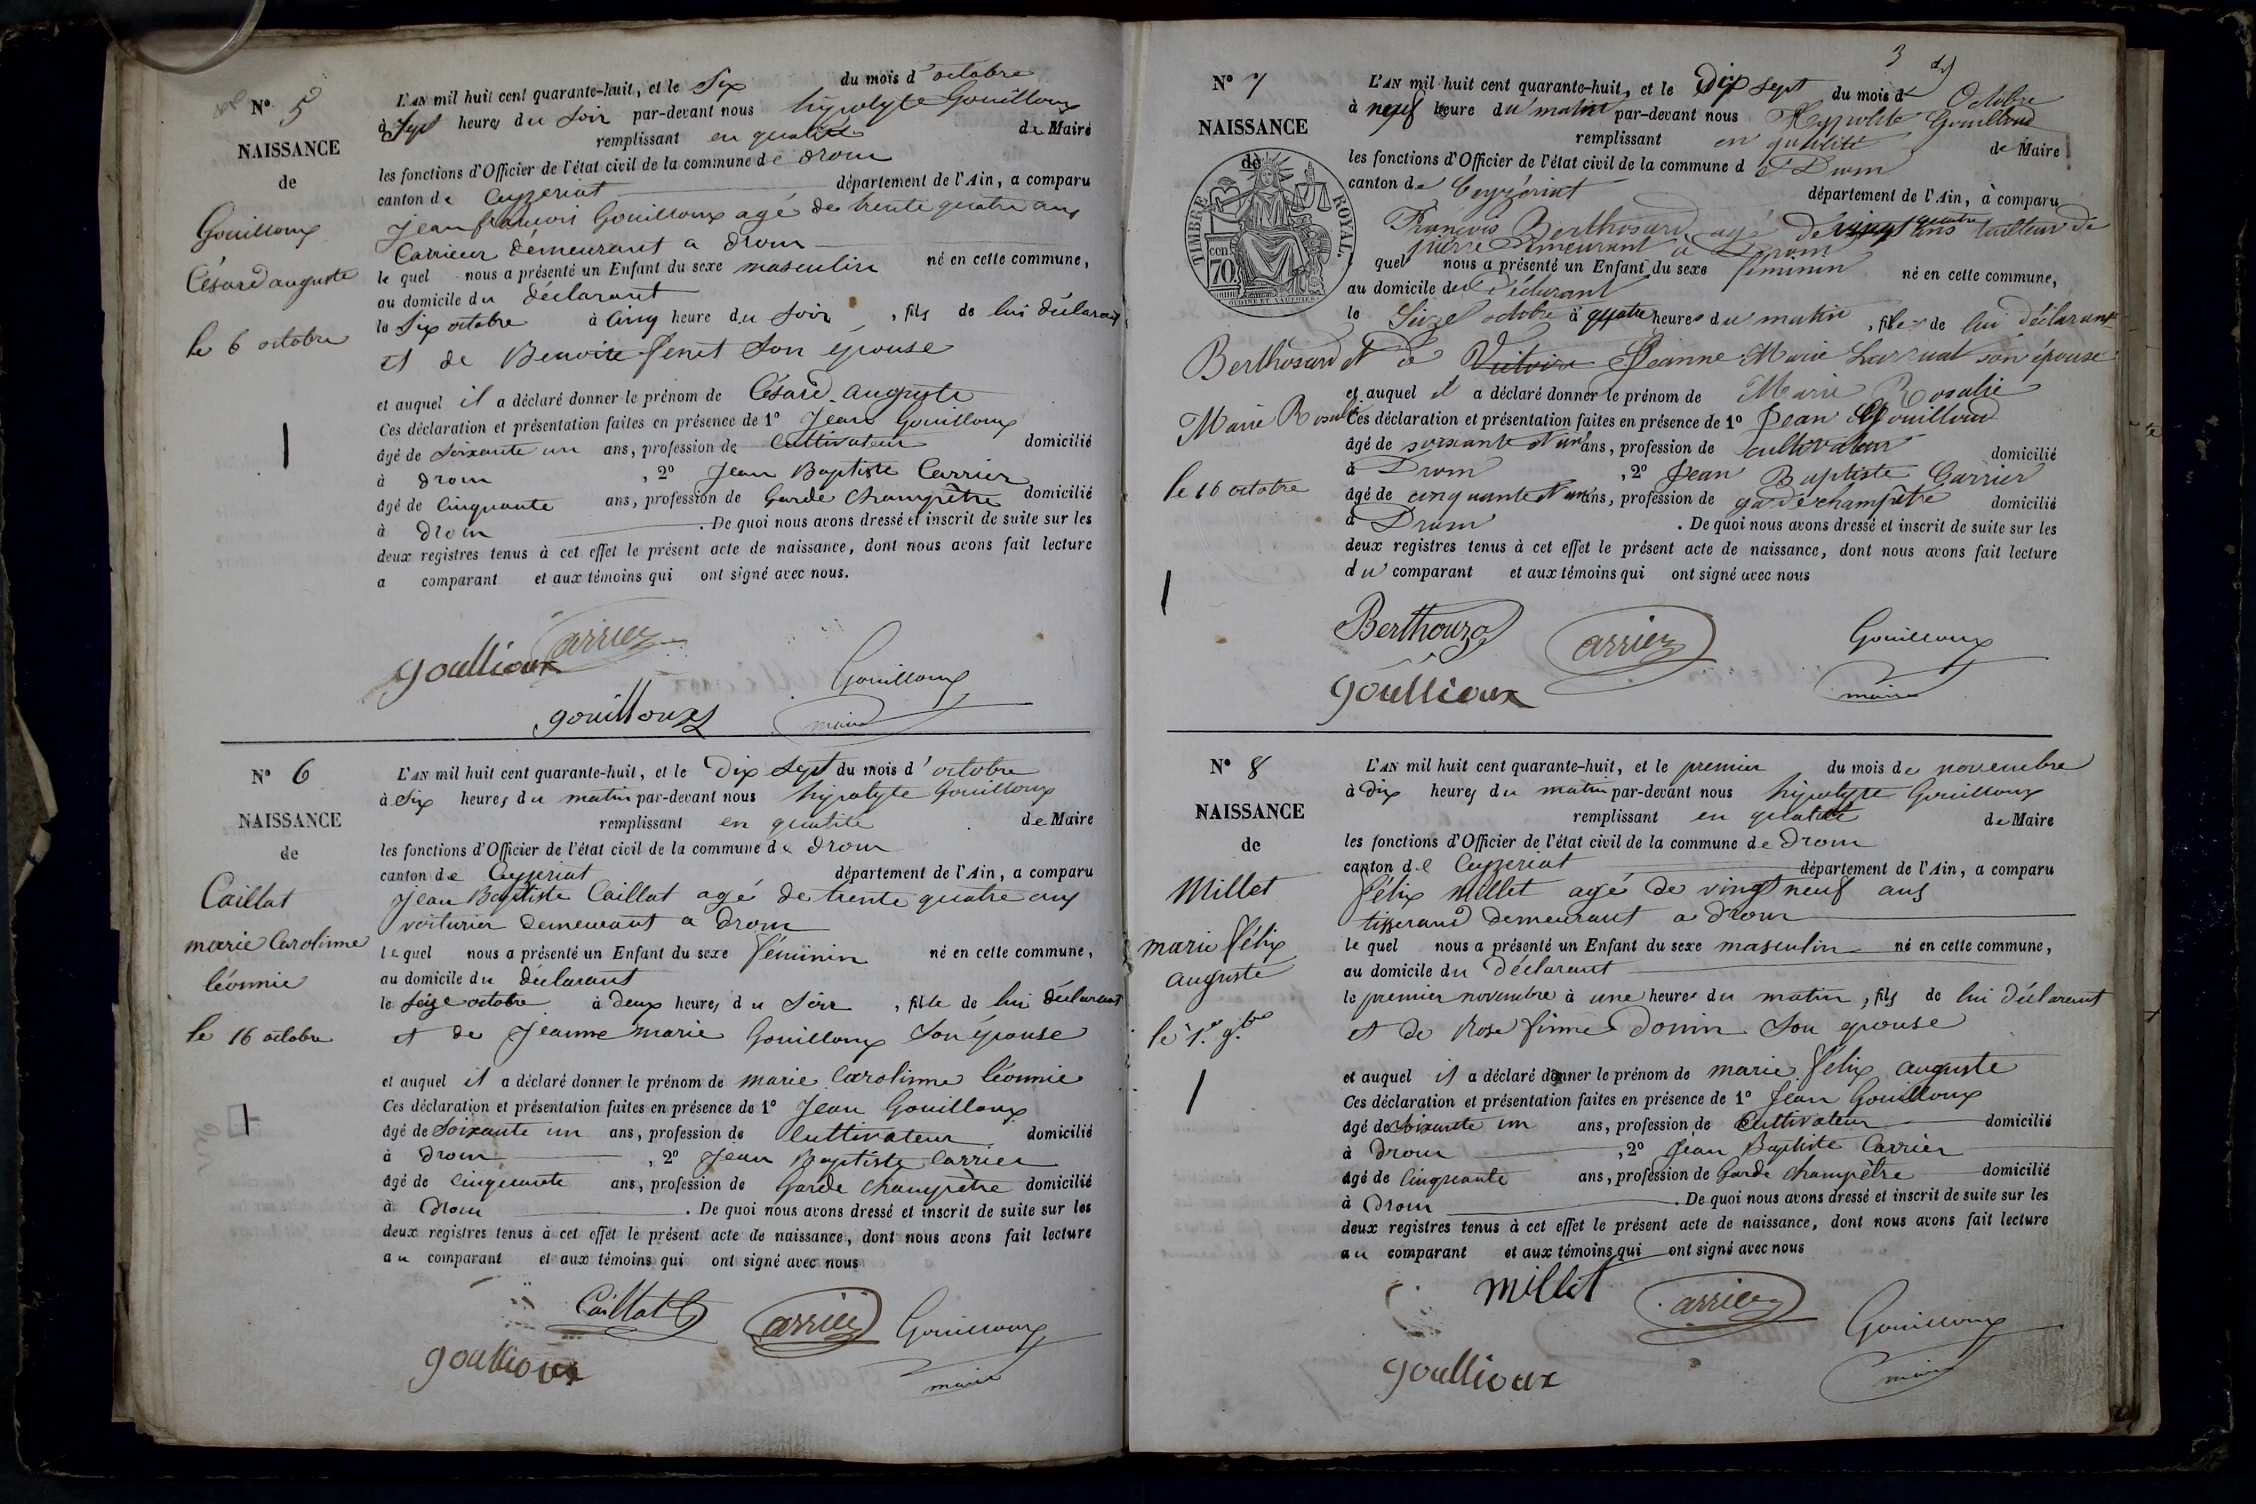 N° 5
NAISSANCE
de
Gouilloux
Césard auguste
le 6 octobre
L'AN mil huit cent quarante-huit, et le Six du mois d'octobre
à Sept heures du Soir par-devant nous hypolyte Gouilloux
remplissant en qualité de Maire
les fonctions d'Officier de l'état civil de la commune de drom
canton de Ceyzeriat département de l'Ain, a comparu
jean françois Gouilloux agé de trente quatre ans
Carrieur demeurant a drom
le quel nous a présenté un Enfant du sexe masculin né en cette commune,
au domicile du déclarant
le Six octobre à Cinq heure du Soir, fils de lui déclarant
et de Benoite ferret Son epouse
et auquel il a déclaré donner le prénom de Césard auguste
Ces déclaration et présentation faites en présence de 1° Jean Gouilloux
âgé de Soixante un ans, profession de Cultivateur domicilié
à drom, 2° Jean Baptiste Carrier
âgé de Cinquante ans, profession de Garde Champêtre domicilié
à drom. De quoi nous avons dressé et inscrit de suite sur les
deux registres tenus à cet effet le présent acte de naissance, dont nous avons fait lecture
a comparant et aux témoins qui ont signé avec nous.
Carrier
goullioux
Gouilloux
gouilloux
maire
N° 6
NAISSANCE
de
Caillat
marie Carolinne
léonnie
le 16 octobre
L'AN mil huit cent quarante-huit, et le Dix Sept du mois d'octobre
à Six heures du matin par-devant nous hypolyte Gouilloux
remplissant en qualité de Maire
les fonctions d'Officier de l'état civil de la commune de drom
canton de Ceyzeriat département de l'Ain, a comparu
jean Baptiste Caillat agé de trente quatre ans
voiturier demeurant a drom
lequel nous a présenté un Enfant du sexe féminin né en cette commune,
au domicile du déclarant
le Seize octobre à deux heures du Soir, fille de lui déclarant
et de jeanne marie Gouilloux Son épouse
et auquel il a déclaré donner le prénom de marie Carolinne léonnie
Ces déclaration et présentation faites en présence de 1° Jean Gouilloux
âgé de Soixante un ans, profession de Cultivateur domicilié
à drom, 2° Jean Baptiste Carrier
âgé de Cinquante ans, profession de Garde Champêtre domicilié
à Drom. De quoi nous avons dressé et inscrit de suite sur les
deux registres tenus à cet effet le présent acte de naissance, dont nous avons fait lecture
au comparant et aux témoins qui ont signé avec nous
Caillat
Carrier
Gouilloux
goullioux
maire
3
N° 7
NAISSANCE
de
TIMBRE ROYAL
cen. 70
Berthosard
Marie Rosalie
le 16 octobre
L'AN mil huit cent quarante-huit, et le Dix Sept du mois d Octobre
à neuf heure du matin par-devant nous Hyppolite Gouilloud
remplissant en qualité de Maire
les fonctions d'Officier de l'état civil de la commune de Drom
canton de Ceyzériat département de l'Ain, à comparu
François Berthosard agé de vingt quatre ans tailleur de
pierre demeurant à Drom
quel nous a présenté un Enfant du sexe féminin né en cette commune,
au domicile de Déclarant
le Seize octobre à quatre heures du matin, fille de lui déclarant
et de Victoire Jeanne Marie son épouse
et auquel il a déclaré donner le prénom de Marie Rosalie
Ces déclaration et présentation faites en présence de 1° Jean Gouilloud
âgé de soixante et un ans, profession de cultivateur domicilié
à Drom, 2° Jean Baptiste Carrier
âgé de cinquante et un ans, profession de garde champêtre domicilié
à Drom. De quoi nous avons dressé et inscrit de suite sur les
deux registres tenus à cet effet le présent acte de naissance, dont nous avons fait lecture
du comparant et aux témoins qui ont signé avec nous
Berthouzo
Carrier
Gouilloux
goullioux
maire
N° 8
NAISSANCE
de
Millet
marie félix
auguste
le 1er 9bre
L'AN mil huit cent quarante-huit, et le premier du mois de novembre
à dix heures du matin par-devant nous hypolyte Gouilloux
remplissant en qualité de Maire
les fonctions d'Officier de l'état civil de la commune de drom
canton de Ceyzeriat département de l'Ain, a comparu
félix Millet agé de vingt neuf ans
tisserand demeurant a drom
le quel nous a présenté un Enfant du sexe masculin né en cette commune,
au domicile du déclarant
le premier novembre à une heures du matin, fils de lui déclarant
et de Rose finne Donin Son epouse
et auquel il a déclaré donner le prénom de marie félix auguste
Ces déclaration et présentation faites en présence de 1° Jean Gouilloux
âgé de Soixante un ans, profession de Cultivateur domicilié
à drom, 2° Jean Baptiste Carrier
âgé de Cinquante ans, profession de Garde Champêtre domicilié
à Drom. De quoi nous avons dressé et inscrit de suite sur les
deux registres tenus à cet effet le présent acte de naissance, dont nous avons fait lecture
au comparant et aux témoins qui ont signé avec nous
Millet
Carrier
Gouilloux
goullioux
maire